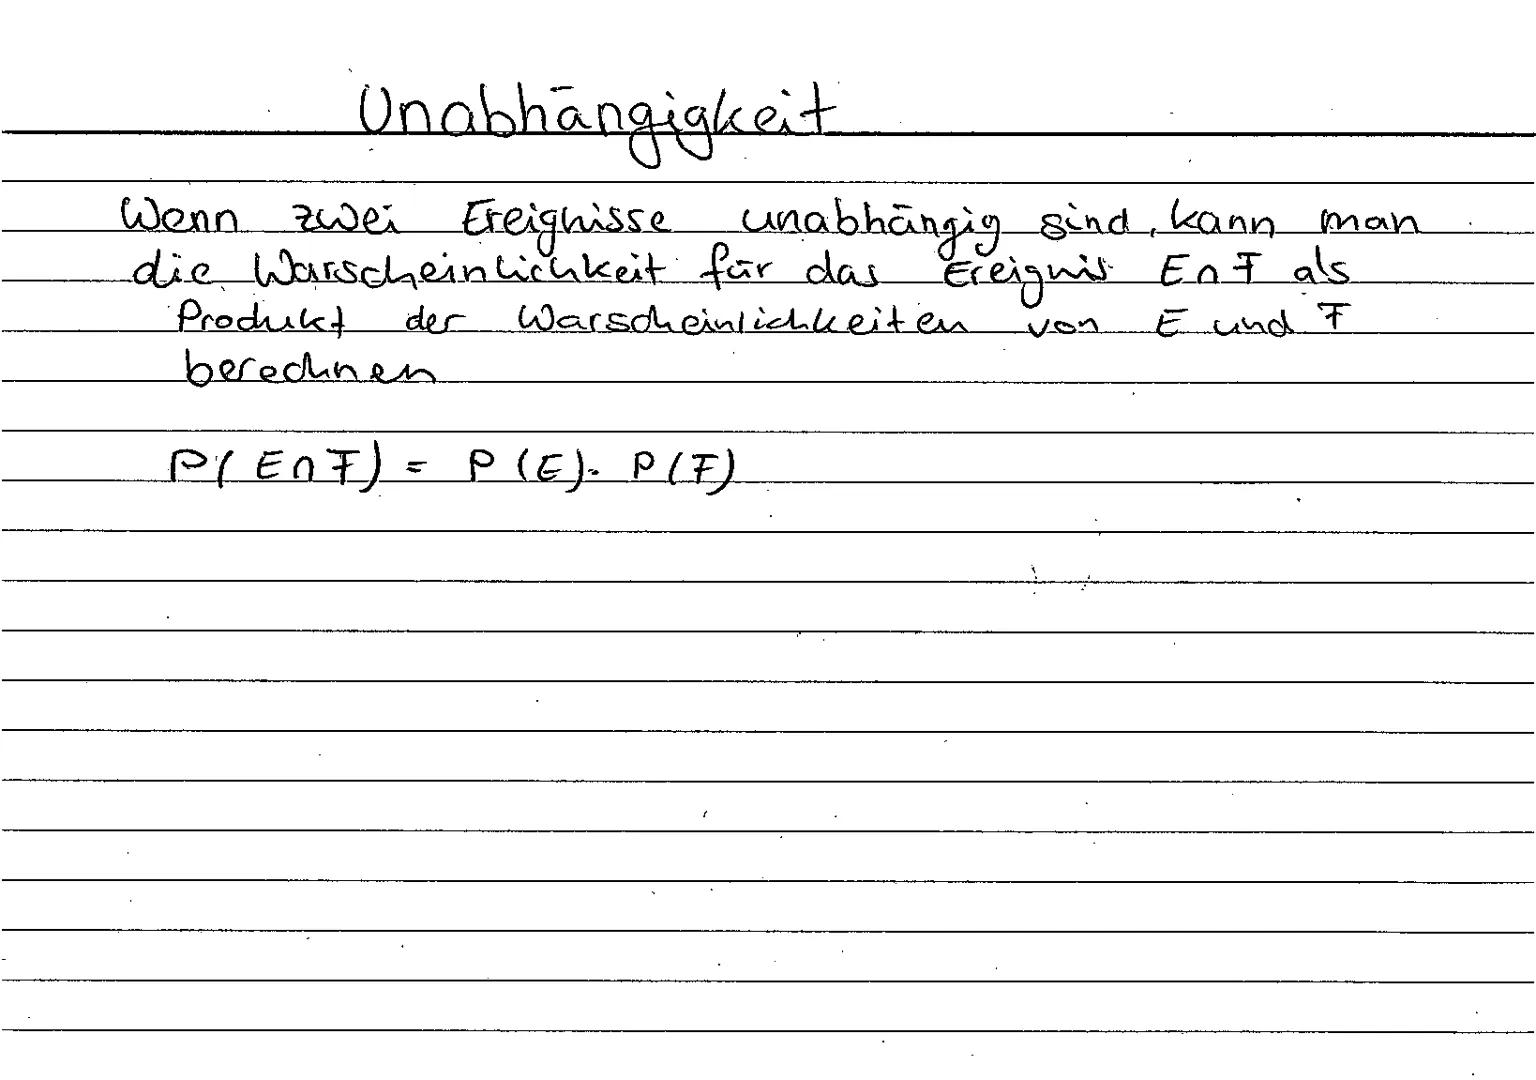 Unabhängigkeit
Wenn zwei Ereignisse unabhängig sind, kann man
die Warscheinlichkeit für das Ereignis E∩F als
Produkt der Warscheinlichkeiten von E und F
berechnen
P(E∩F) = P(E)·P(F)